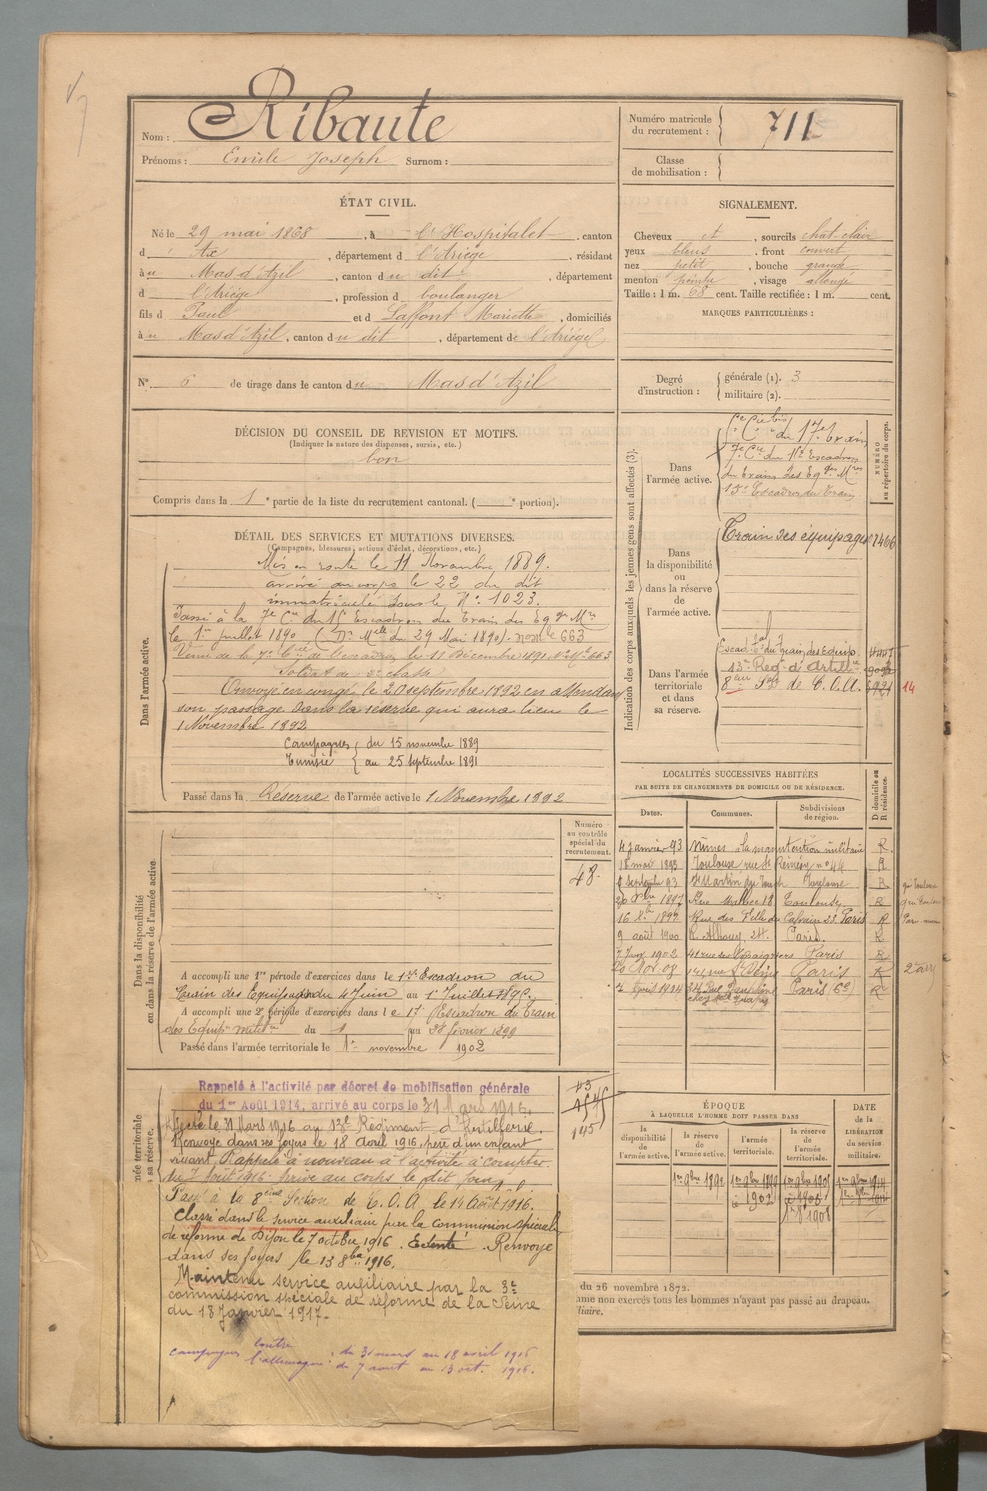 Nom : Ribaute
Prénoms : Emile Joseph Surnom :
Numéro matricule du recrutement : 711
Classe de mobilisation :
ÉTAT CIVIL.
Né le 29 mai 1868, à l'Hospitalet, canton
d'Ax, département d l'Ariège, résidant
à u Mas d'Azil, canton du dit, département
d l'Ariège, profession d boulanger
fils d Paul et d Laffont Mariette, domiciliés
à u Mas d'Azil, canton du dit, département de l'Ariège
N° 6 de tirage dans le canton du Mas d'Azil
SIGNALEMENT.
Cheveux et, sourcils chât-clair
yeux bleus, front couvert
nez petit, bouche grande
menton pointu, visage allongé
Taille : 1 m. 68 cent. Taille rectifiée : 1 m. cent.
MARQUES PARTICULIÈRES :
Degré d'instruction : générale (1). 3
militaire (2).
DÉCISION DU CONSEIL DE REVISION ET MOTIFS.
(Indiquer la nature des dispenses, sursis, etc.)
bon
Compris dans la 1e partie de la liste du recrutement cantonal. ( e portion).
DÉTAIL DES SERVICES ET MUTATIONS DIVERSES.
(Campagnes, blessures, actions d'éclat, décorations, etc.)
Dans l'armée active.
Mis en route le 11 Novembre 1889.
arrivé au corps le 22 du dit
immatriculé sous le N° 1023.
Passé à la 7e Cie du 15 Escadron du Train des Eqges Mres
le 1er juillet 1890 (Dn Mlle du 29 Mai 1890) - nom le 663
Venu de la 7e Cie de l'escadron le 11 Décembre 1891 No Mle 663
Soldat de 2e classe
Envoyé en congé le 20 septembre 1892 en attendant
son passage dans la réserve qui aura lieu le
1 Novembre 1892
Campagnes du 15 novembre 1889
Tunisie au 25 septembre 1891
Passé dans la Réserve de l'armée active le 1 Novembre 1892
Indication des corps auxquels les jeunes gens sont affectés (3).
NUMÉRO au répertoire du corps.
Dans l'armée active.
du 17e train
7e Cie du 15e Escadron
du Train des Eqges Mres
15e Escadron du Train
Dans la disponibilité ou dans la réserve de l'armée active.
Train des équipages 1466
Dans l'armée territoriale et dans sa réserve.
Escadon du Train des Equip.
13e Regt d'Artillie
8ème Son de C.O.A. 14
LOCALITÉS SUCCESSIVES HABITÉES
PAR SUITE DE CHANGEMENTS DE DOMICILE OU DE RÉSIDENCE.
Dates. Communes. Subdivisions de région. D domicile ou R résidence.
4 janvier 93 Nîmes à la manutention militaire R
18 mai 1893 Toulouse rue St Rémésy n° 44 R
6 septembre 93 St Martin du Touch Toulouse R
1897 Rue 18 Toulouse R
16 8bre 1899 Rue des Filles du Calvaire 23 Paris R
9 août 1900 R. Alhouy, 24. Paris R
7 Janv 1902 Paris R
20 Nov. 08 141 rue St Denis Paris R
2 Avril 1924 34 Rue Dauphine Paris (6e) R
Dans la disponibilité ou dans la réserve de l'armée active
Numéro au contrôle spécial du recrutement.
48
A accompli une 1re période d'exercices dans le 17e Escadron du
Train des Equipages du 4 Juin au 1er Juillet 1895.
A accompli une 2e période d'exercices dans le 17 Escadron du Train
des Equips milites du 1 au 28 février 1899
Passé dans l'armée territoriale le 1er novembre 1902
Rappelé à l'activité par décret de mobilisation générale
du 1er Août 1914, arrivé au corps le 31 Mars 1916.
Affecté le 31 Mars 1916 au 13e Régiment d'Artillerie.
Renvoyé dans ses foyers le 18 Avril 1916, père d'un enfant
vivant. Rappelé à nouveau à l'activité à compter
du 7 Août 1916. Arrivé au corps le dit jour.
Passé à la 8ème Section de C.O.A. le 14 Août 1916.
Classé dans le service auxiliaire par la Commission spéciale
de réforme de Dijon le 7 octobre 1916. Renvoyé
dans ses foyers le 13 8bre 1916.
Maintenu service auxiliaire par la 3e
commission spéciale de réforme de la Seine
du 18 Janvier 1917.
campagnes contre l'allemagne : du 31 mars au 18 avril 1916
du 7 aout au 13 oct. 1916.
ÉPOQUE
À LAQUELLE L'HOMME DOIT PASSER DANS
la disponibilité de l'armée active. la réserve de l'armée active. l'armée territoriale. la réserve de l'armée territoriale.
DATE de la LIBÉRATION du service militaire.
1er 9bre 1892
1902
1908
du 26 novembre 1872.
mme non exercés tous les hommes n'ayant pas passé au drapeau.
iliaire.